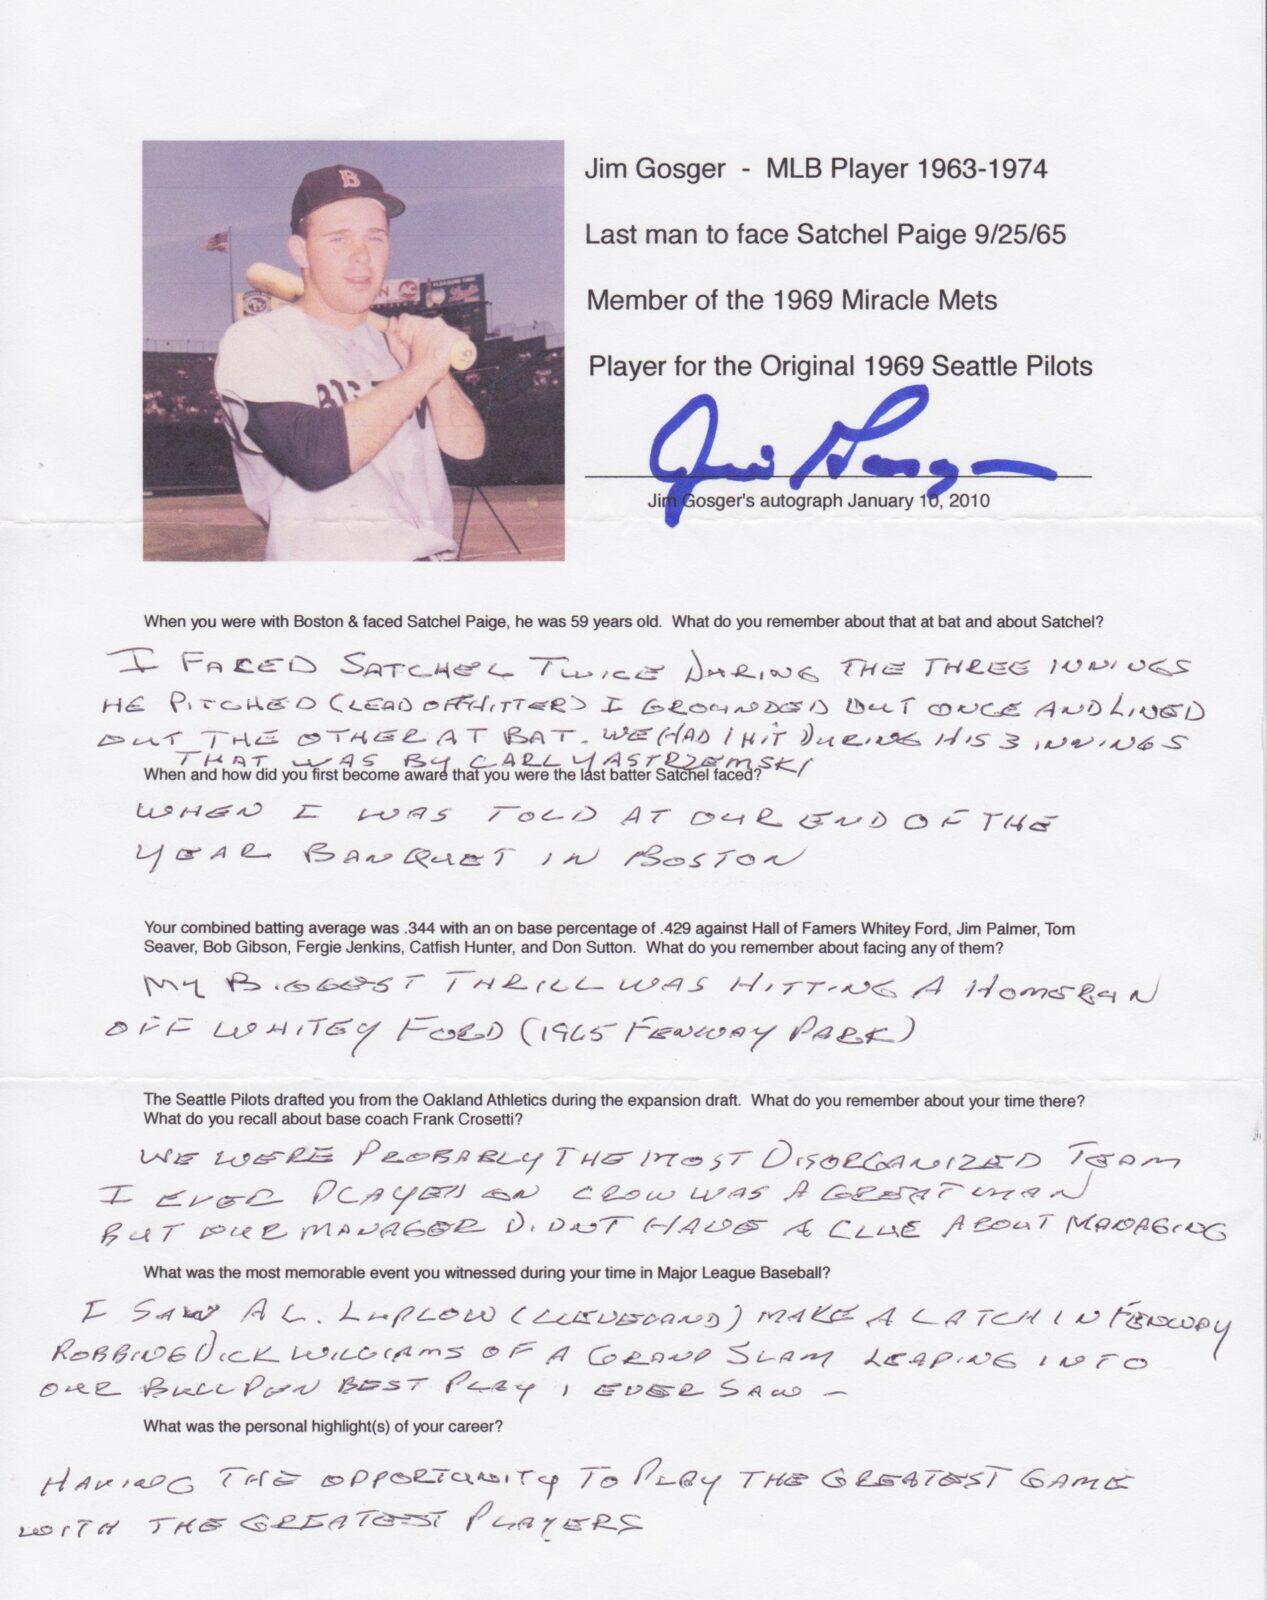 Jim Gosger - MLB Player 1963-1974
Last man to face Satchel Paige 9/25/65
Member of the 1969 Miracle Mets
Player for the Original 1969 Seattle Pilots
Jim Gosger
Jim Gosger's autograph January 10, 2010
B
When you were with Boston & faced Satchel Paige, he was 59 years old. What do you remember about that at bat and about Satchel?
I FACED SATCHEL TWICE DURING THE THREE INNINGS
HE PITCHED (LEAD OFF HITTER) I GROUNDED OUT ONCE AND LINED
OUT THE OTHER AT BAT. WE HAD 1 HIT DURING HIS 3 INNINGS
THAT WAS BY CARL YASTRZEMSKI
When and how did you first become aware that you were the last batter Satchel faced?
WHEN I WAS TOLD AT OUR END OF THE
YEAR BANQUET IN BOSTON
Your combined batting average was .344 with an on base percentage of .429 against Hall of Famers Whitey Ford, Jim Palmer, Tom
Seaver, Bob Gibson, Fergie Jenkins, Catfish Hunter, and Don Sutton. What do you remember about facing any of them?
MY BIGGEST THRILL WAS HITTING A HOMERUN
OFF WHITEY FORD (1965 FENWAY PARK)
The Seattle Pilots drafted you from the Oakland Athletics during the expansion draft. What do you remember about your time there?
What do you recall about base coach Frank Crosetti?
WE WERE PROBABLY THE MOST DISORGANIZED TEAM
I EVER PLAYED ON CROW WAS A GREAT MAN
BUT OUR MANAGER DIDNT HAVE A CLUE ABOUT MANAGING
What was the most memorable event you witnessed during your time in Major League Baseball?
I SAW AL. LUPLOW (CLEVELAND) MAKE A CATCH IN FENWAY
ROBBING DICK WILLIAMS OF A GRAND SLAM LEAPING INTO
OUR BULLPEN BEST PLAY I EVER SAW -
What was the personal highlight(s) of your career?
HAVING THE OPPORTUNITY TO PLAY THE GREATEST GAME
WITH THE GREATEST PLAYERS